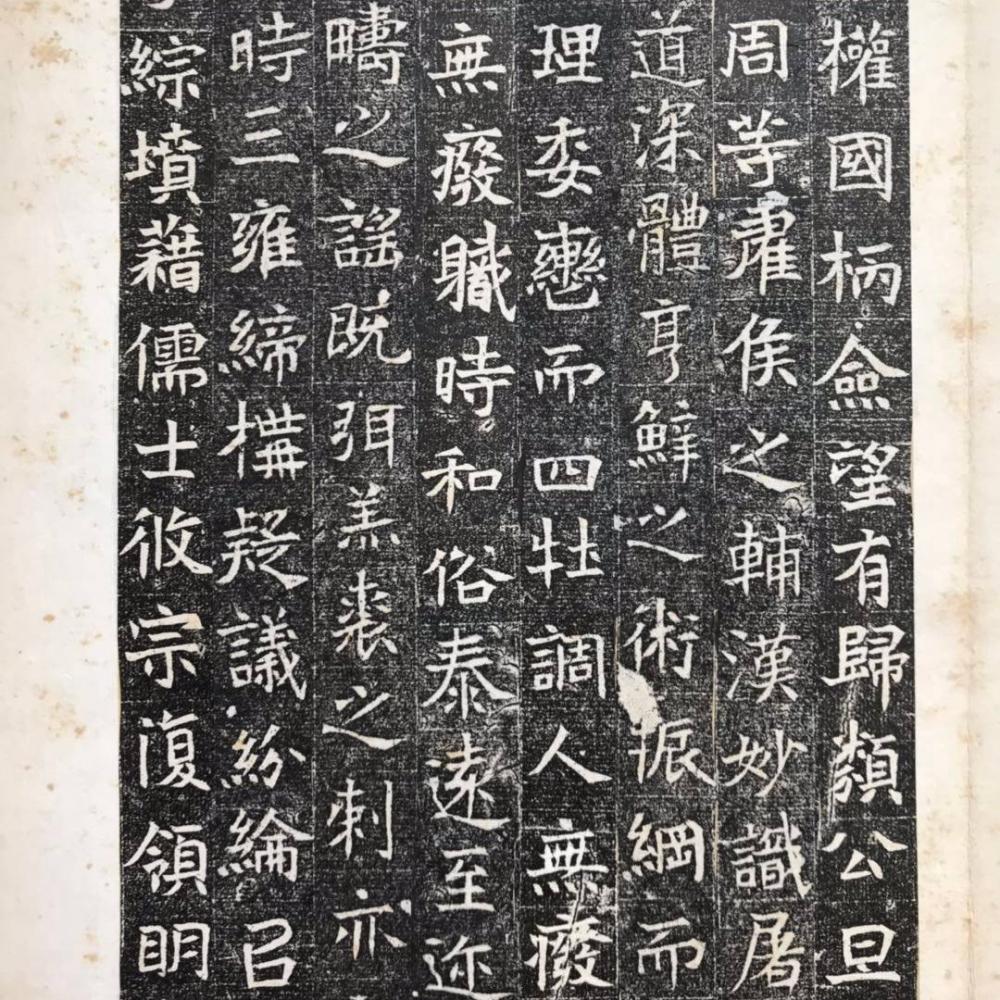 權國柄僉望有歸類公旦
周等霍侯之輔漢妙識屠
道深體亨鮮之術振綱而
理委轡而四牡調人無癈
無癈職時和俗泰遠至迩
疇之謡既弭羔裘之刺亦
時三雍締構疑議紛綸召
綜墳藉儒士攸宗復領明